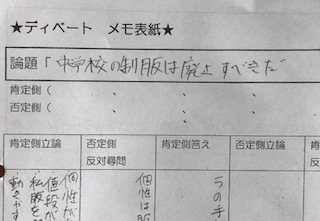 ★ディベート　メモ表紙★
論題「中学校の制服は廃止すべきだ
肯定側（　　、　　、　　、
否定側（　　、　　、　　、
肯定側立論　否定側反対尋問　肯定側答え　否定側立論
個性が
値段が
私服を
動きやす
個性は服
うの手